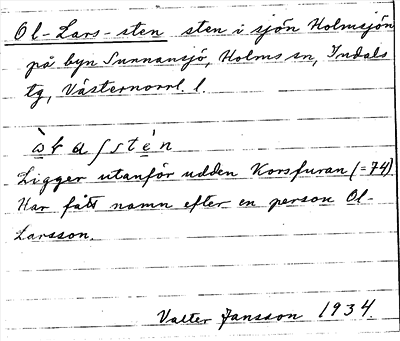 Ol-Lars-sten sten i sjön Holmsjön
på byn Sunnansjö, Holms sn, Indals
tg, Västernorrl. l.
Ligger utanför udden Korsfuran (=74)
Har fått namn efter en person Ol-
Larsson.
Valter Jansson 1934